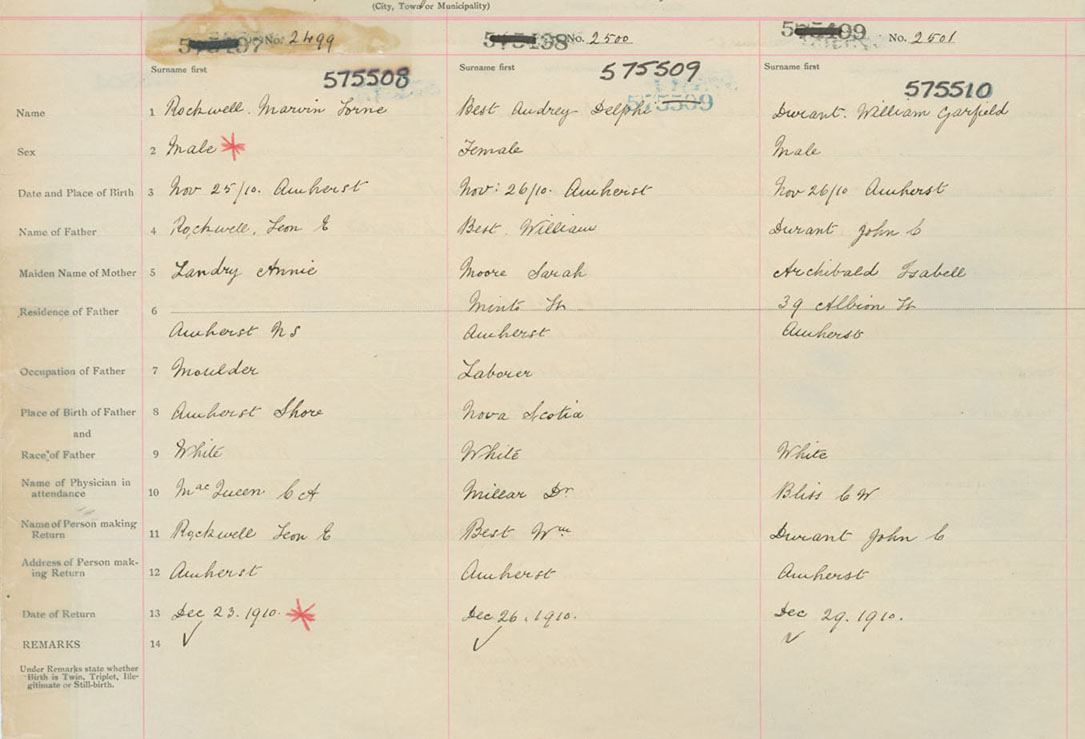 (City, Town or Municipality)
No. 2499 No. 2500 No. 2501
Surname first Surname first Surname first
575508 575509 575510
Name 1 Rockwell. Marvin Lorne Best Audrey Delphe Durant. William Garfield
Sex 2 Male Female Male
Date and Place of Birth 3 Nov 25/10. Amherst Nov: 26/10. Amherst Nov 26/10 Amherst
Name of Father 4 Rockwell, Leon E Best. William Durant John C
Maiden Name of Mother 5 Landry Annie Moore Sarah Archibald Isabell
Residence of Father 6 Minto St 39 Albion St
Amherst NS Amherst Amherst
Occupation of Father 7 Moulder Laborer
Place of Birth of Father 8 Amherst Shore Nova Scotia
and
Race of Father 9 White White White
Name of Physician in
attendance 10 MacQueen C A Millar Dr Bliss C W
Name of Person making
Return 11 Rockwell Leon E Best Wm Durant John C
Address of Person mak-
ing Return 12 Amherst Amherst Amherst
Date of Return 13 Dec 23. 1910. Dec 26. 1910. Dec 29. 1910.
REMARKS 14
Under Remarks state whether
Birth is Twin, Triplet, Ille-
gitimate or Still-birth.